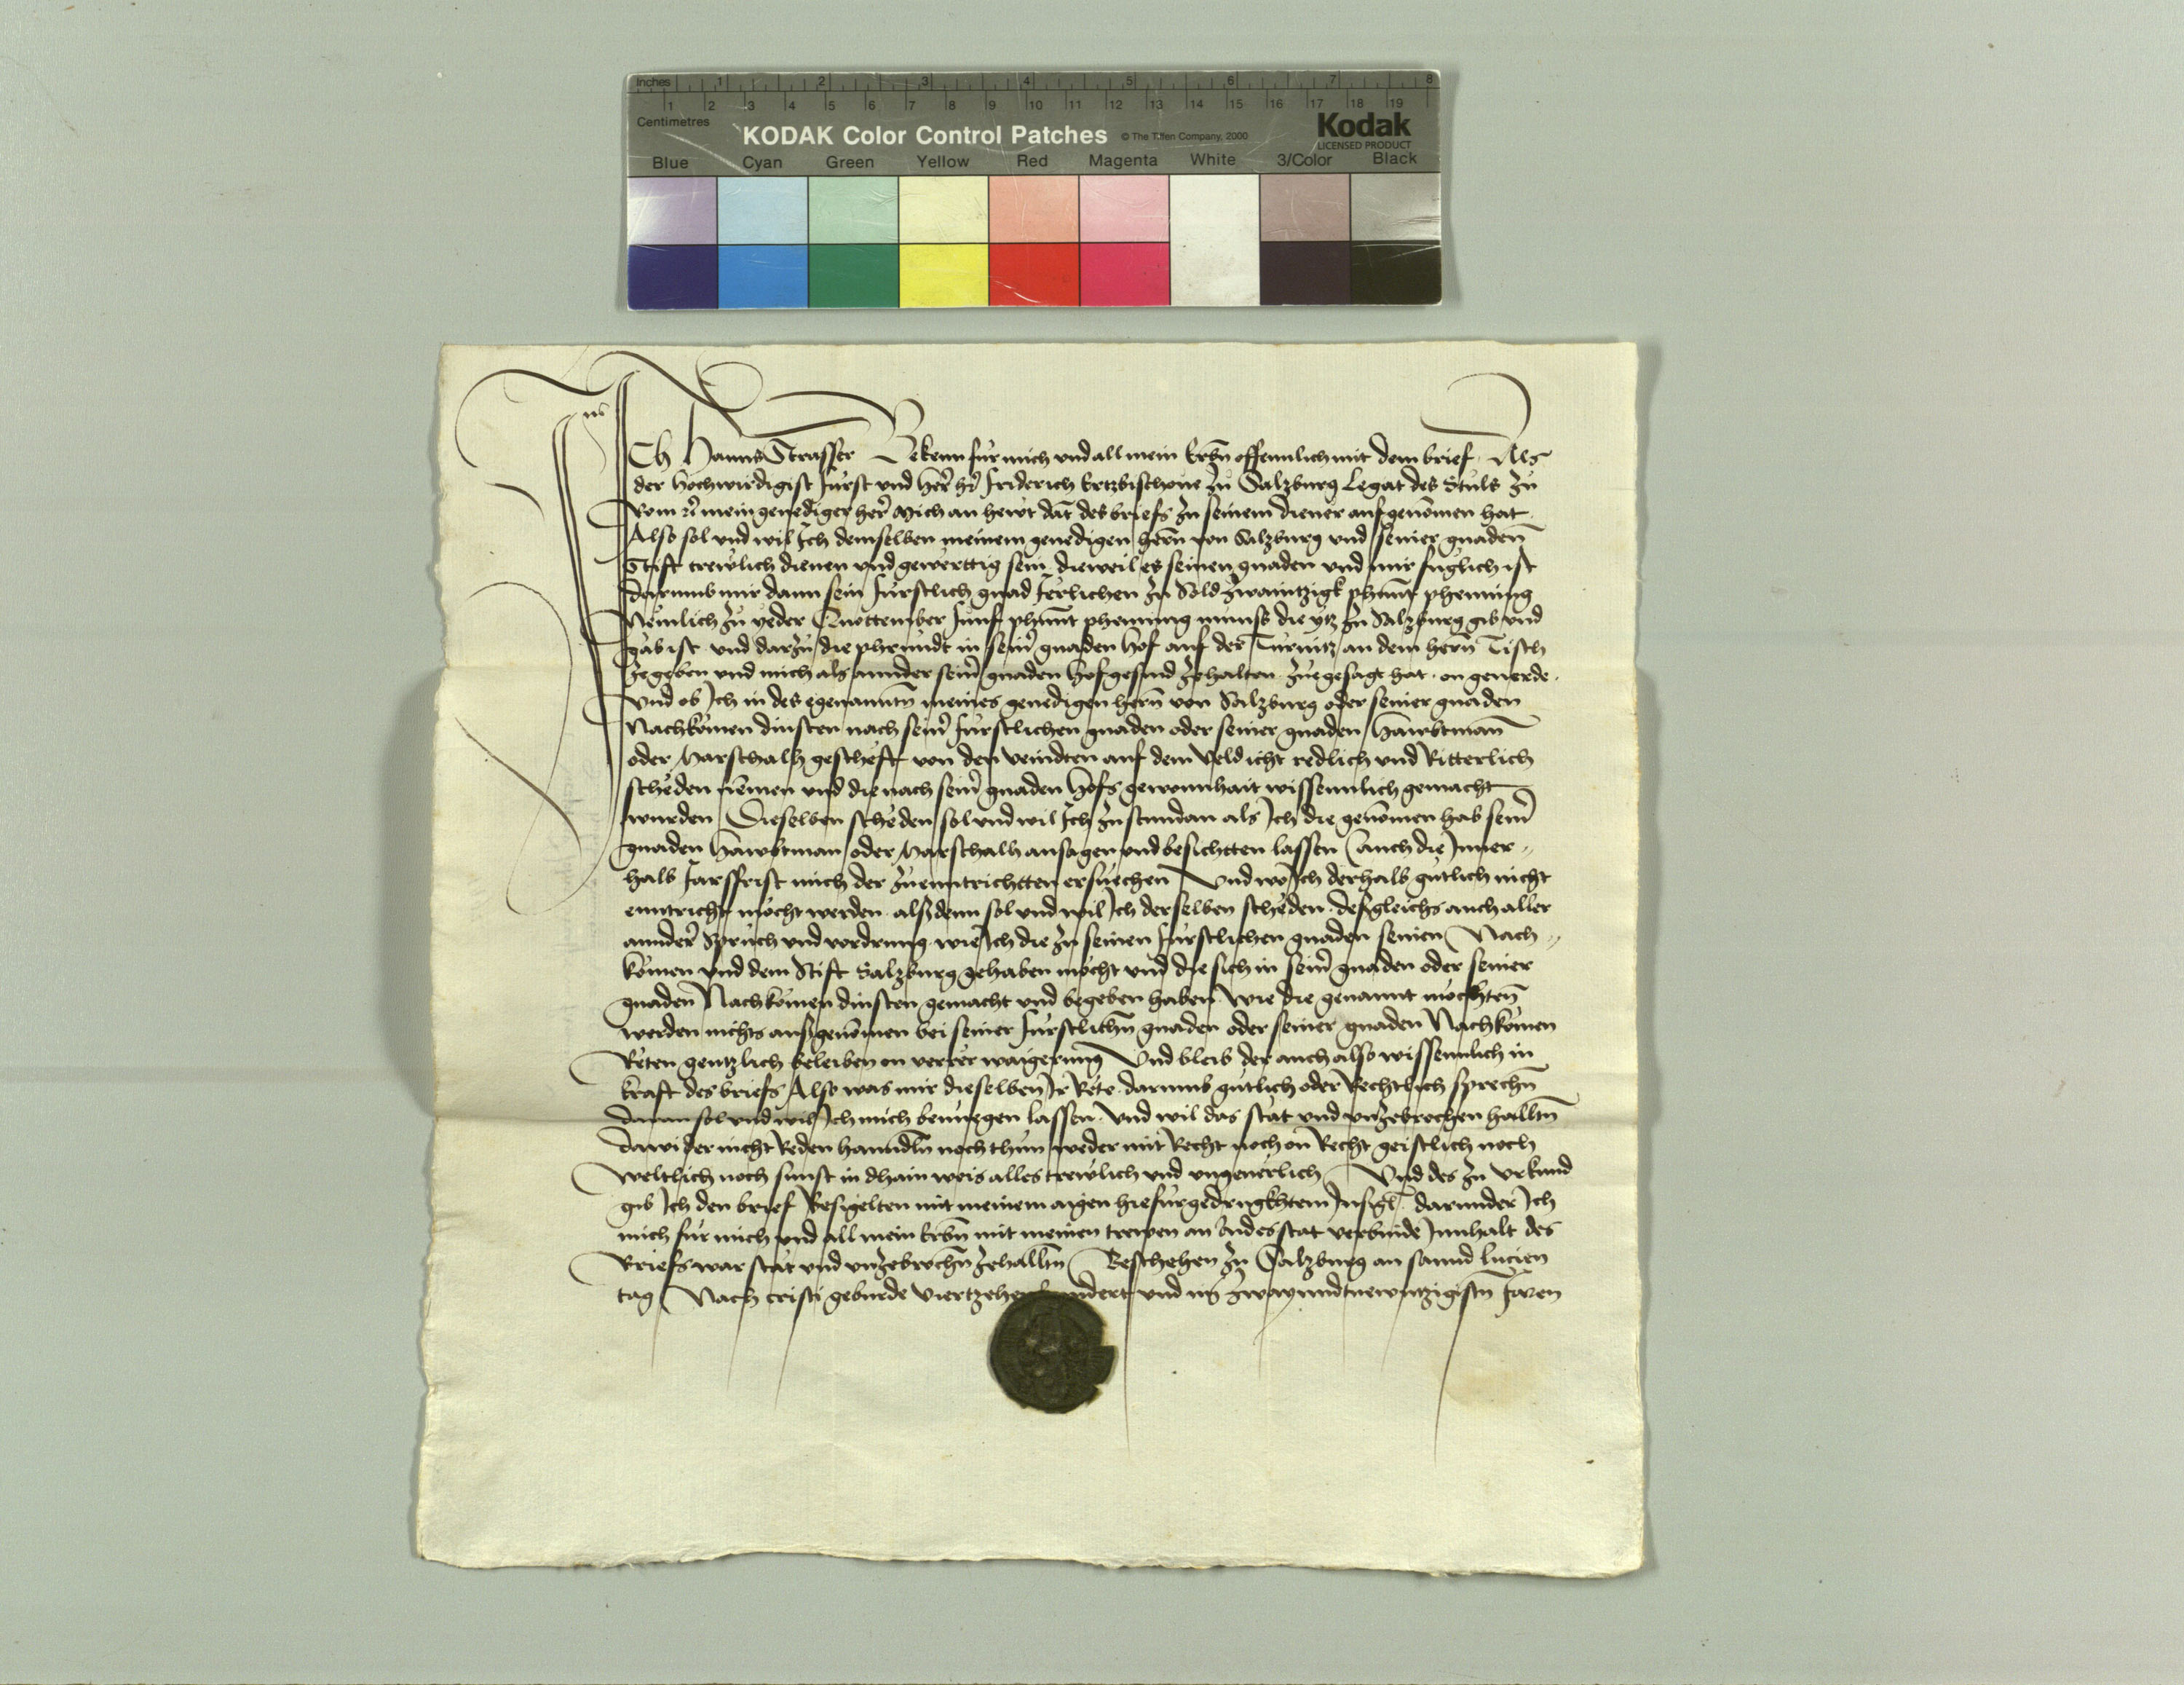 Inches 1 2 3 4 5 6 7 8
1 2 3 4 5 6 7 8 9 10 11 12 13 14 15 16 17 18 19
Centimetres
KODAK Color Control Patches © The Tiffen Company, 2000 Kodak
LICENSED PRODUCT
Blue Cyan Green Yellow Red Magenta White 3/Color Black
ICh Hanns Strasser Bekenn für mich vnd all mein Erbn̄ offennlich mit dem brief Als
der hochwirdigist Fürst vnd herr̄ hr̄ Friderich Ertzbischoue zu Salzburg Legat des Stuls zu
Rom rc̄ mein genediger her̄ mich an hewt dat̄ des briefs zu seinem diener aufgenōmen hat
Also sol vnd wil Ich demselben meinem genedigen herrn̄ von Salzburg vnd seiner gnaden
Stift trewlich dienen vnd gewerttig sein dieweil es seinen gnaden vnd mir fuglich ist
darumb mir dann sein Fürstlich gnad Jerlichen zu Sold zwaintzigk phunt phenning
Nemlich zu yeder Quottember fünf phunt phenning munss die ytz zu Salzburg gib vnd
gäb ist vnd darzu die phrundt in seinr̄ gnaden hof auf der Türnitz an dem herrn̄ Tisch
zegeben vnd mich als annder seinr̄ gnaden hofgesind zehalten zuegesagt hat on geuerde
Vnd ob Ich in des egenanntn̄ meines genedigen herrn̄ von Salzburg oder seiner gnaden
Nachkōmen dinsten nach seinr̄ Fürstlichen gnaden oder seiner gnaden Hawbtman̄
oder Marschalh gescheft von den veindten auf dem Veld icht redlich vnd Ritterlich
scheden nēmen vnd die nach seinr̄ gnaden hofs gewonnhait wissennlich gemacht
wurden Dieselben scheden sol vnd wil Ich zustundan als Ich die genōmen hab seinr̄
gnaden Hawbtman oder Marschalh ansagen vnd besichtten lassen auch die Inner-
halb Jarsfrist mich der zuenntrichtten ersuechen Vnd wo Ich derhalb gütlich nicht
enntricht möcht werden alssdenn sol vnd wil Ich derselben scheden desgleichs auch aller
annder̄ Spruch vnd vordrung wie Ich die zu seinen Fürstlichen gnaden seinen Nach-
kōmen vnd dem Stift Salzburg gehaben möcht vnd die sich in seinr̄ gnaden oder seiner
gnaden Nachkōmen dinsten gemacht vnd begeben haben wie die genannt möchten
werden nichts aussgenōmen bei seiner Fürstlichn̄ gnaden oder seiner gnaden Nachkōmen
Reten genntzlich beleiben on verrer waigerung Vnd bleib der auch also wissennlich in
kraft des briefs Also was mir dieselben Ir Rete darumb gütlich oder Rechtlich sprechn̄
daran sol vnd wil Ich mich benuegen lassen Vnd wil das stat vnd vnzebrochen halltn̄
dawider nicht Reden hanndln̄ noch thun weder mit Recht noch on̄ Recht geistlich noch
weltlich noch sunst in dhain weis alles trewlich vnd vngeuerlich Vnd des zu vrkund
gib Ich den brief Besigelten mit meinem aigen hiefürgedrugkhtem Insigl̄ darunder Ich
mich für mich vnd all mein Erbn̄ mit meinen trewen an Aides stat verbinde Innhalt des
Briefs war stat vnd vnzebrochn̄ zehalltn̄ Beschehen zu Salzburg an sannd Lucien
tag Nach cristi geburde Viertzehenhundert vnd im̄ zwayundnewntzigistn̄ Jaren